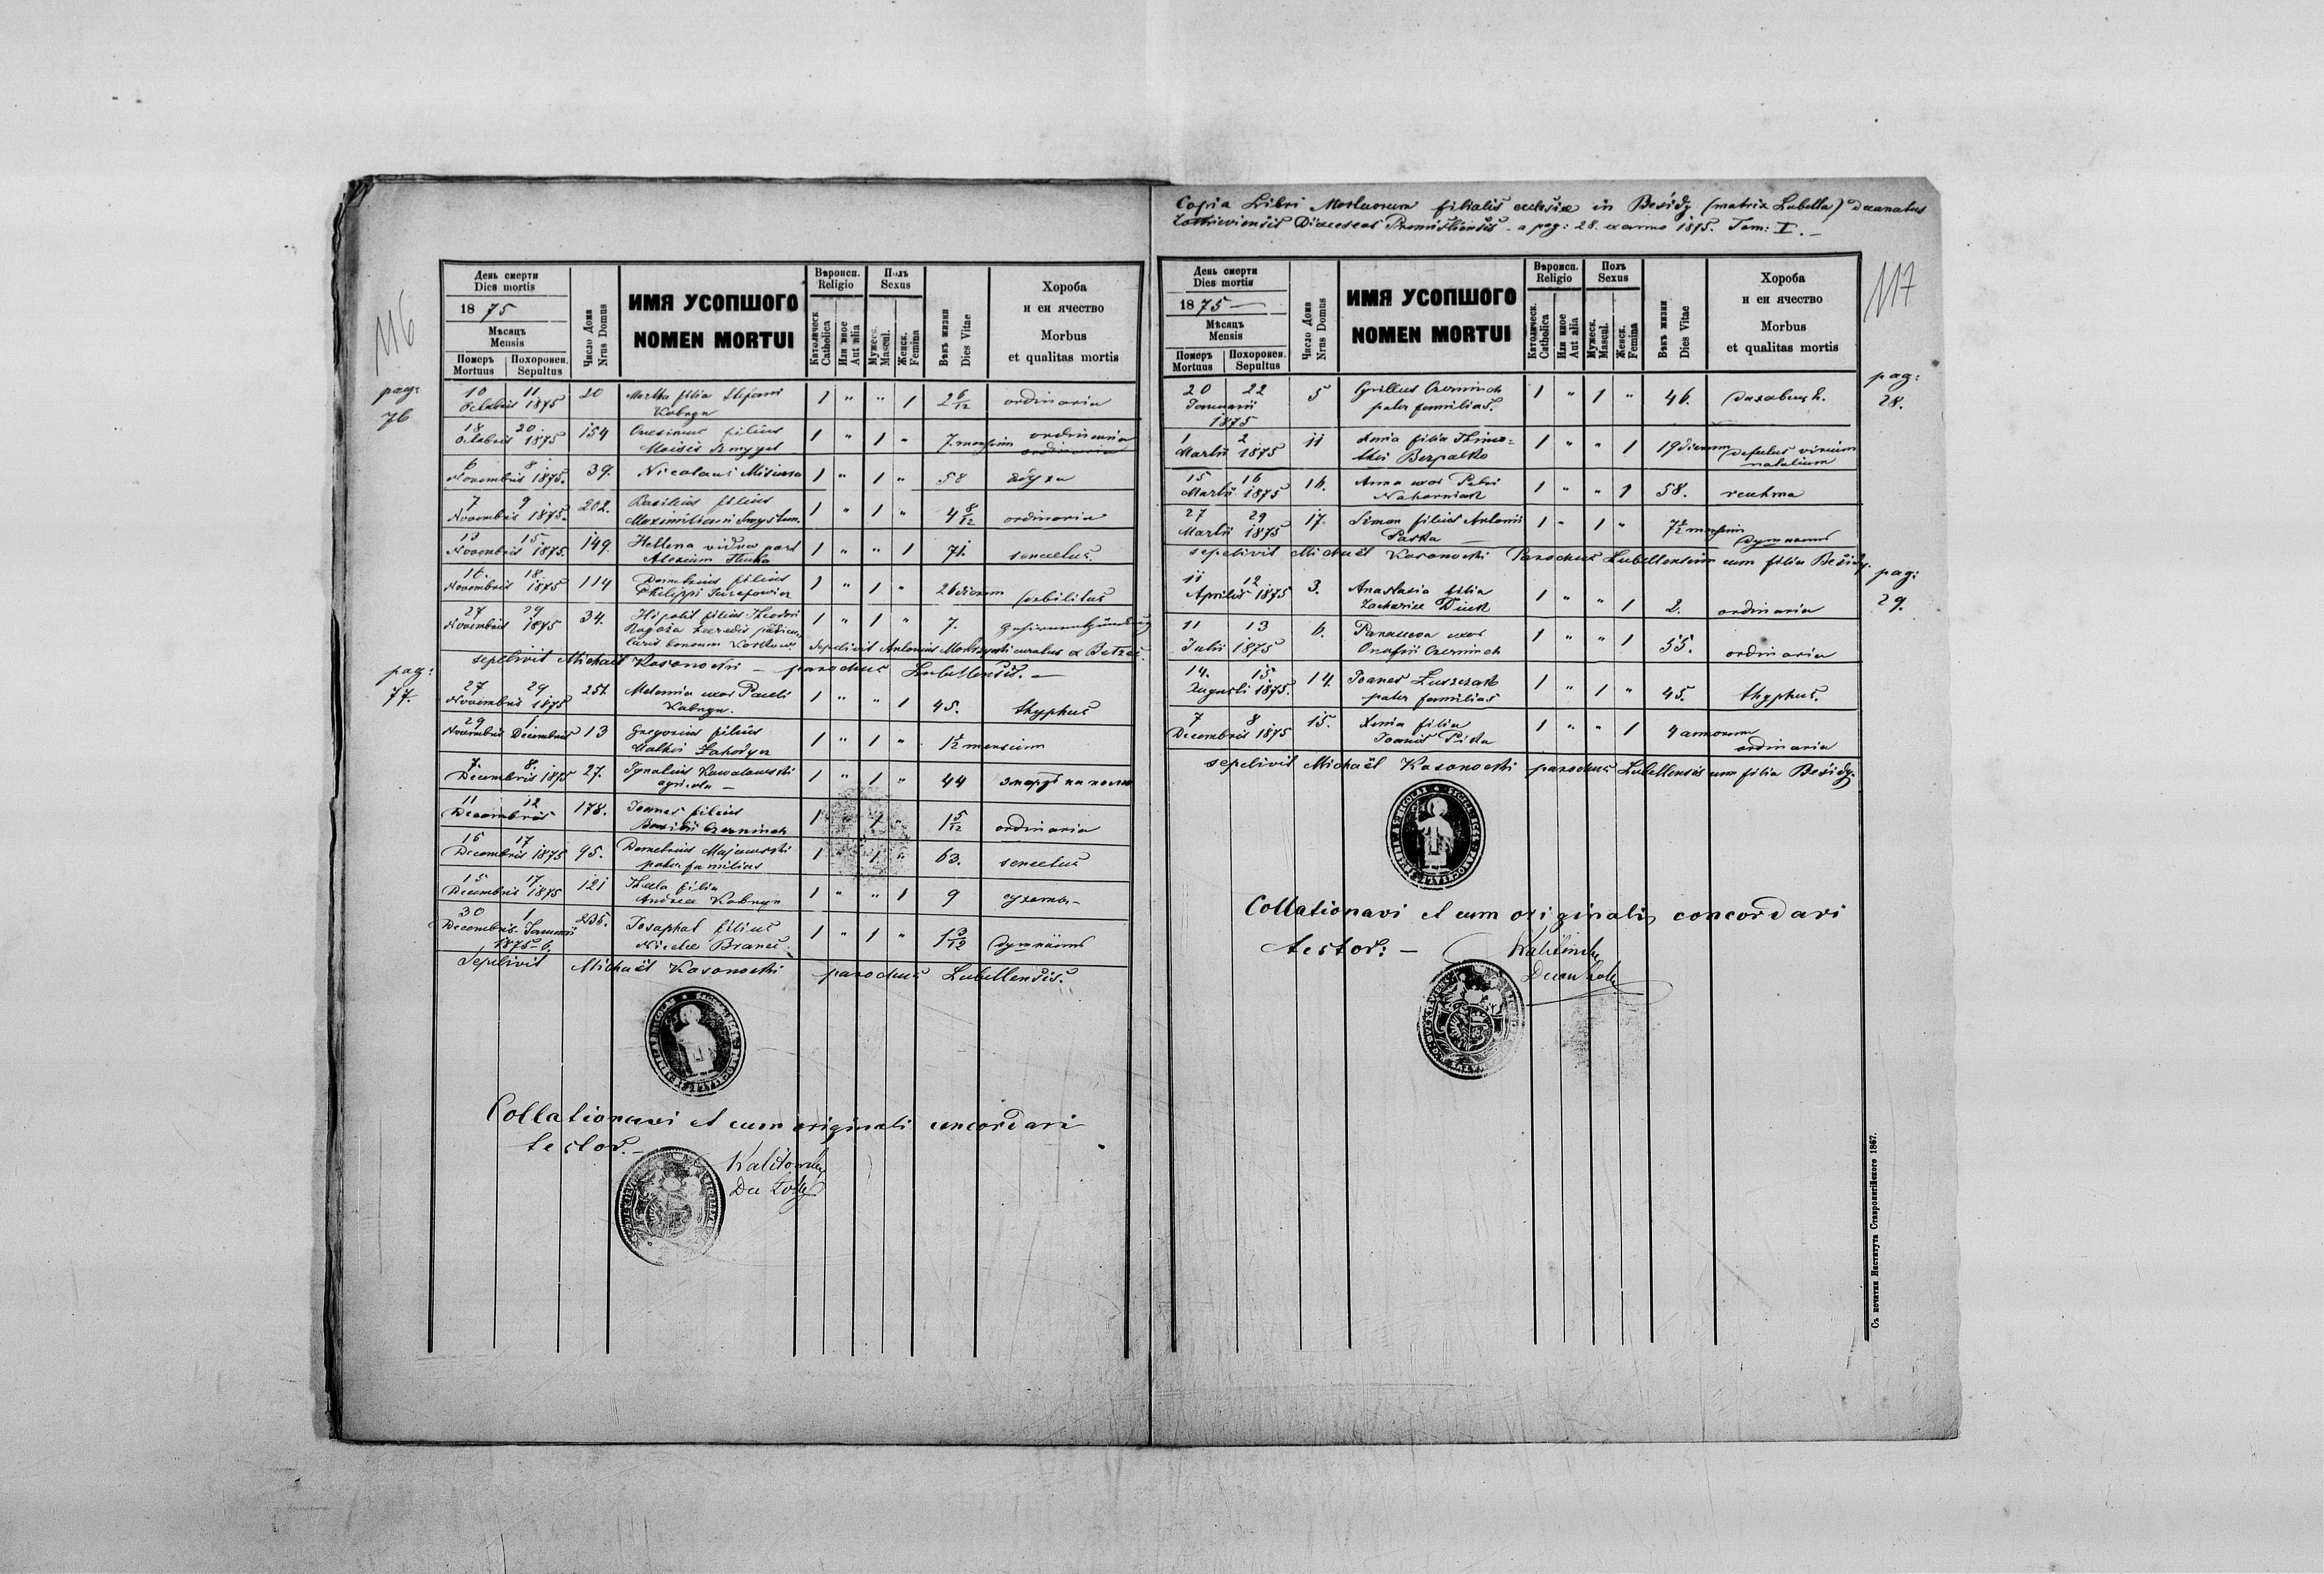 116
День смерти
Dies mortis
1875
Мѣсяць
Mensis
Померъ Похоронен.
Mortuus Sepultus
Число Дома
Nrus Domus
ИМЯ УСОПШОГО
NOMEN MORTUI
Вѣроисп.
Religio
Католическ.
Catholica
Или иное
Aut alia
Полъ
Sexus
Мужеск.
Mascul.
Женск.
Femina
Вѣкъ жизни
Dies Vitae
Хороба
и еи ячество
Morbus
et qualitas mortis
pag: 76
10 11 20 Martha filia Stefani 1 " " 1 2 6/12 ordinaria
Octobris 1875 Kobryn
18 20 154 Onesimus filius 1 " 1 " 7 mensium ordinaria
Octobris 1875 Moisis Szmygel
6 8 39. Nicolaus Misiura 1 " 1 " 58
Novembris 1875.
7 9 202. Basilius filius 1 " 1 " 4 8/12 ordinaria
Novembris 1875. Maximiliani
13 15 149. Hellena vidua post 1 " " 1 71. senectus.
Novembris 1875. Alexium
16. 18. 114 Demetrius filius 1 " 1 " 26 dierum debilitas
Novembris 1875 Philippi Juzefowicz
27 29 34. Hipolit filius Theodori 1 " 1 " 7. Gehirnentzündung
Novembris 1875 Rogoża heredis
bonorum sepelivit Antonius curatus a Betzec.
sepelivit Michaël Kosonocki – parochus Lubellensis. –
pag: 77.
27 29 257 Melania uxor Pauli 1 " " 1 45. thyphus
Novembris 1875 Kobryn.
29 1. 13 Gregorius filius 1 " 1 " 1 1/2 mensium
Novembris Decembris Mathei Zahodyn
7. 8. 27. Ignatius Kowalowski 1 " 1 " 44
Decembris 1875 agricola –
11 12 178. Joannes filius 1 " 1 " 1 5/12 ordinaria
Decembris Basilii Czerninch
16 17 95. Demetrius Majewski 1 " 1 " 63. senectus
Decembris 1875 pater familias
15 17 121 Thecla filia 1 " " 1 9 сухоты –
Decembris 1875 Andreae Kobryn
30 1 235. Josaphat filius 1 " 1 "
Decembris Januarii Nicolai Braneć.
1875–6.
Sepelivit Michaël Kosonocki parochus Lubellensis.
Collationavi et cum originali concordari
testor. –
Kalitowsky
117
Copia Libri Mortuorum filialis ecclesiae in Besidy (matrix Lubella) decanatus
Diaeceseos Premisliensis – a pag: 28. ex anno 1875. Tom: I. –
День смерти
Dies mortis
1875 –
Мѣсяць
Mensis
Померъ Похоронен.
Mortuus Sepultus
Число Дома
Nrus Domus
ИМЯ УСОПШОГО
NOMEN MORTUI
Вѣроисп.
Religio
Католическ.
Catholica
Или иное
Aut alia
Полъ
Sexus
Мужеск.
Mascul.
Женск.
Femina
Вѣкъ жизни
Dies Vitae
Хороба
и еи ячество
Morbus
et qualitas mortis
pag: 28.
20 22 5 Cyrillus Czerninch 1 " 1 " 46.
Januarii pater familias.
1875
1 2 11 Xenia filia Thimo= 1 " " 1 19 dierum defectus virium
Martii 1875 thei Bezpalko natalium
15 16 16. Anna uxor Petri 1 " " 1 58. reuhma
Martii 1875 Nakoniak
27 29 17. Simon filius Antonii 1 " 1 " 7 1/2 mensium
Martii 1875 Paska –
sepelivit Michaël Kosonocki Parochus Lubellensis cum filia Besidy.
pag: 29.
11 12 3. Anastasia filia 1 " " 1 2. ordinaria
Aprilis 1875 Zachariae Diack
11 13 6. Parascewa uxor 1 " " 1 55. ordinaria
Julii 1875 Onufrii Czerninch
14. 15. 14. Joanes Luszczak 1 " 1 " 45. thyphus.
Augusti 1875. pater familias
7 8 15. Xenia filia 1 " " 1 4 annorum
Decembris 1875 Joannis Pista ordinaria
sepelivit Michaël Kosonocki parochus Lubellensis cum filia Besidy.
Collationavi et cum originalis concordari
testor: –
Съ печатни Института Ставропигійского 1867.